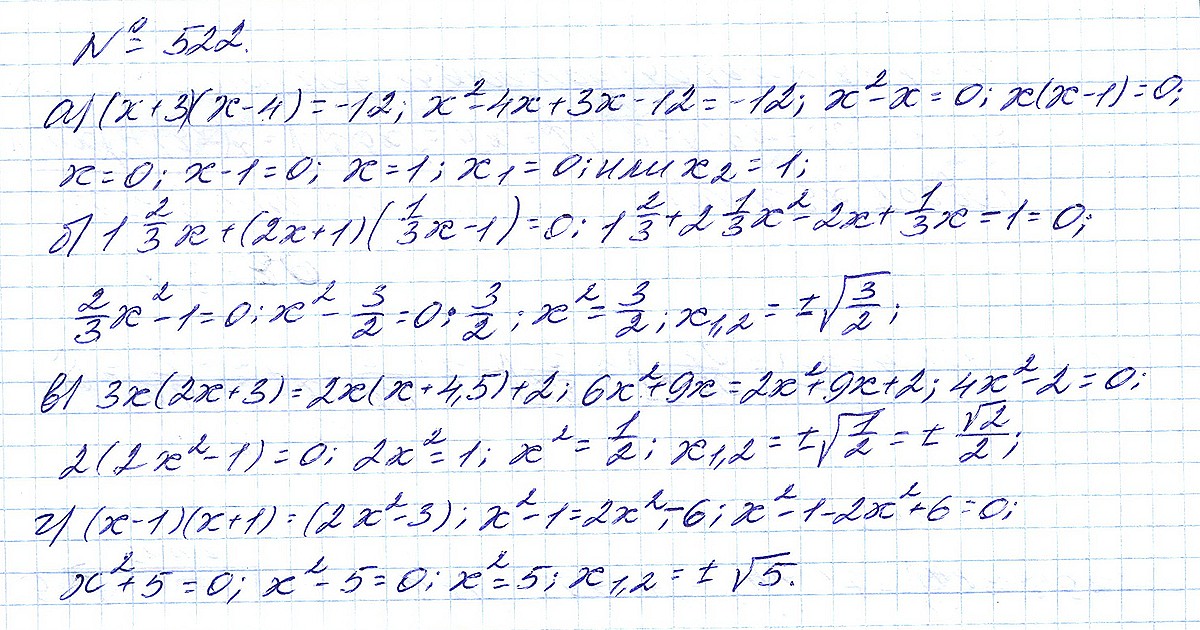 № 522.
а) (x+3)(x-4) = -12; x²-4x+3x-12 = -12; x²-x = 0; x(x-1) = 0;
x = 0; x-1 = 0; x = 1; x₁ = 0; или x₂ = 1;
б) 1 2/3 x + (2x+1)(1/3 x-1) = 0; 1 2/3 + 2 1/3 x² - 2x + 1/3 x - 1 = 0;
2/3 x² - 1 = 0; x² - 3/2 = 0; 3/2; x² = 3/2; x₁,₂ = ±√(3/2);
в) 3x(2x+3) = 2x(x+4,5)+2; 6x²+9x = 2x²+9x+2; 4x²-2 = 0;
2(2x²-1) = 0; 2x² = 1; x² = 1/2; x₁,₂ = ±√(1/2) = ± √2/2;
г) (x-1)(x+1) = (2x²-3); x²-1 = 2x²-6; x²-1-2x²+6 = 0;
x²+5 = 0; x²-5 = 0; x² = 5; x₁,₂ = ± √5.